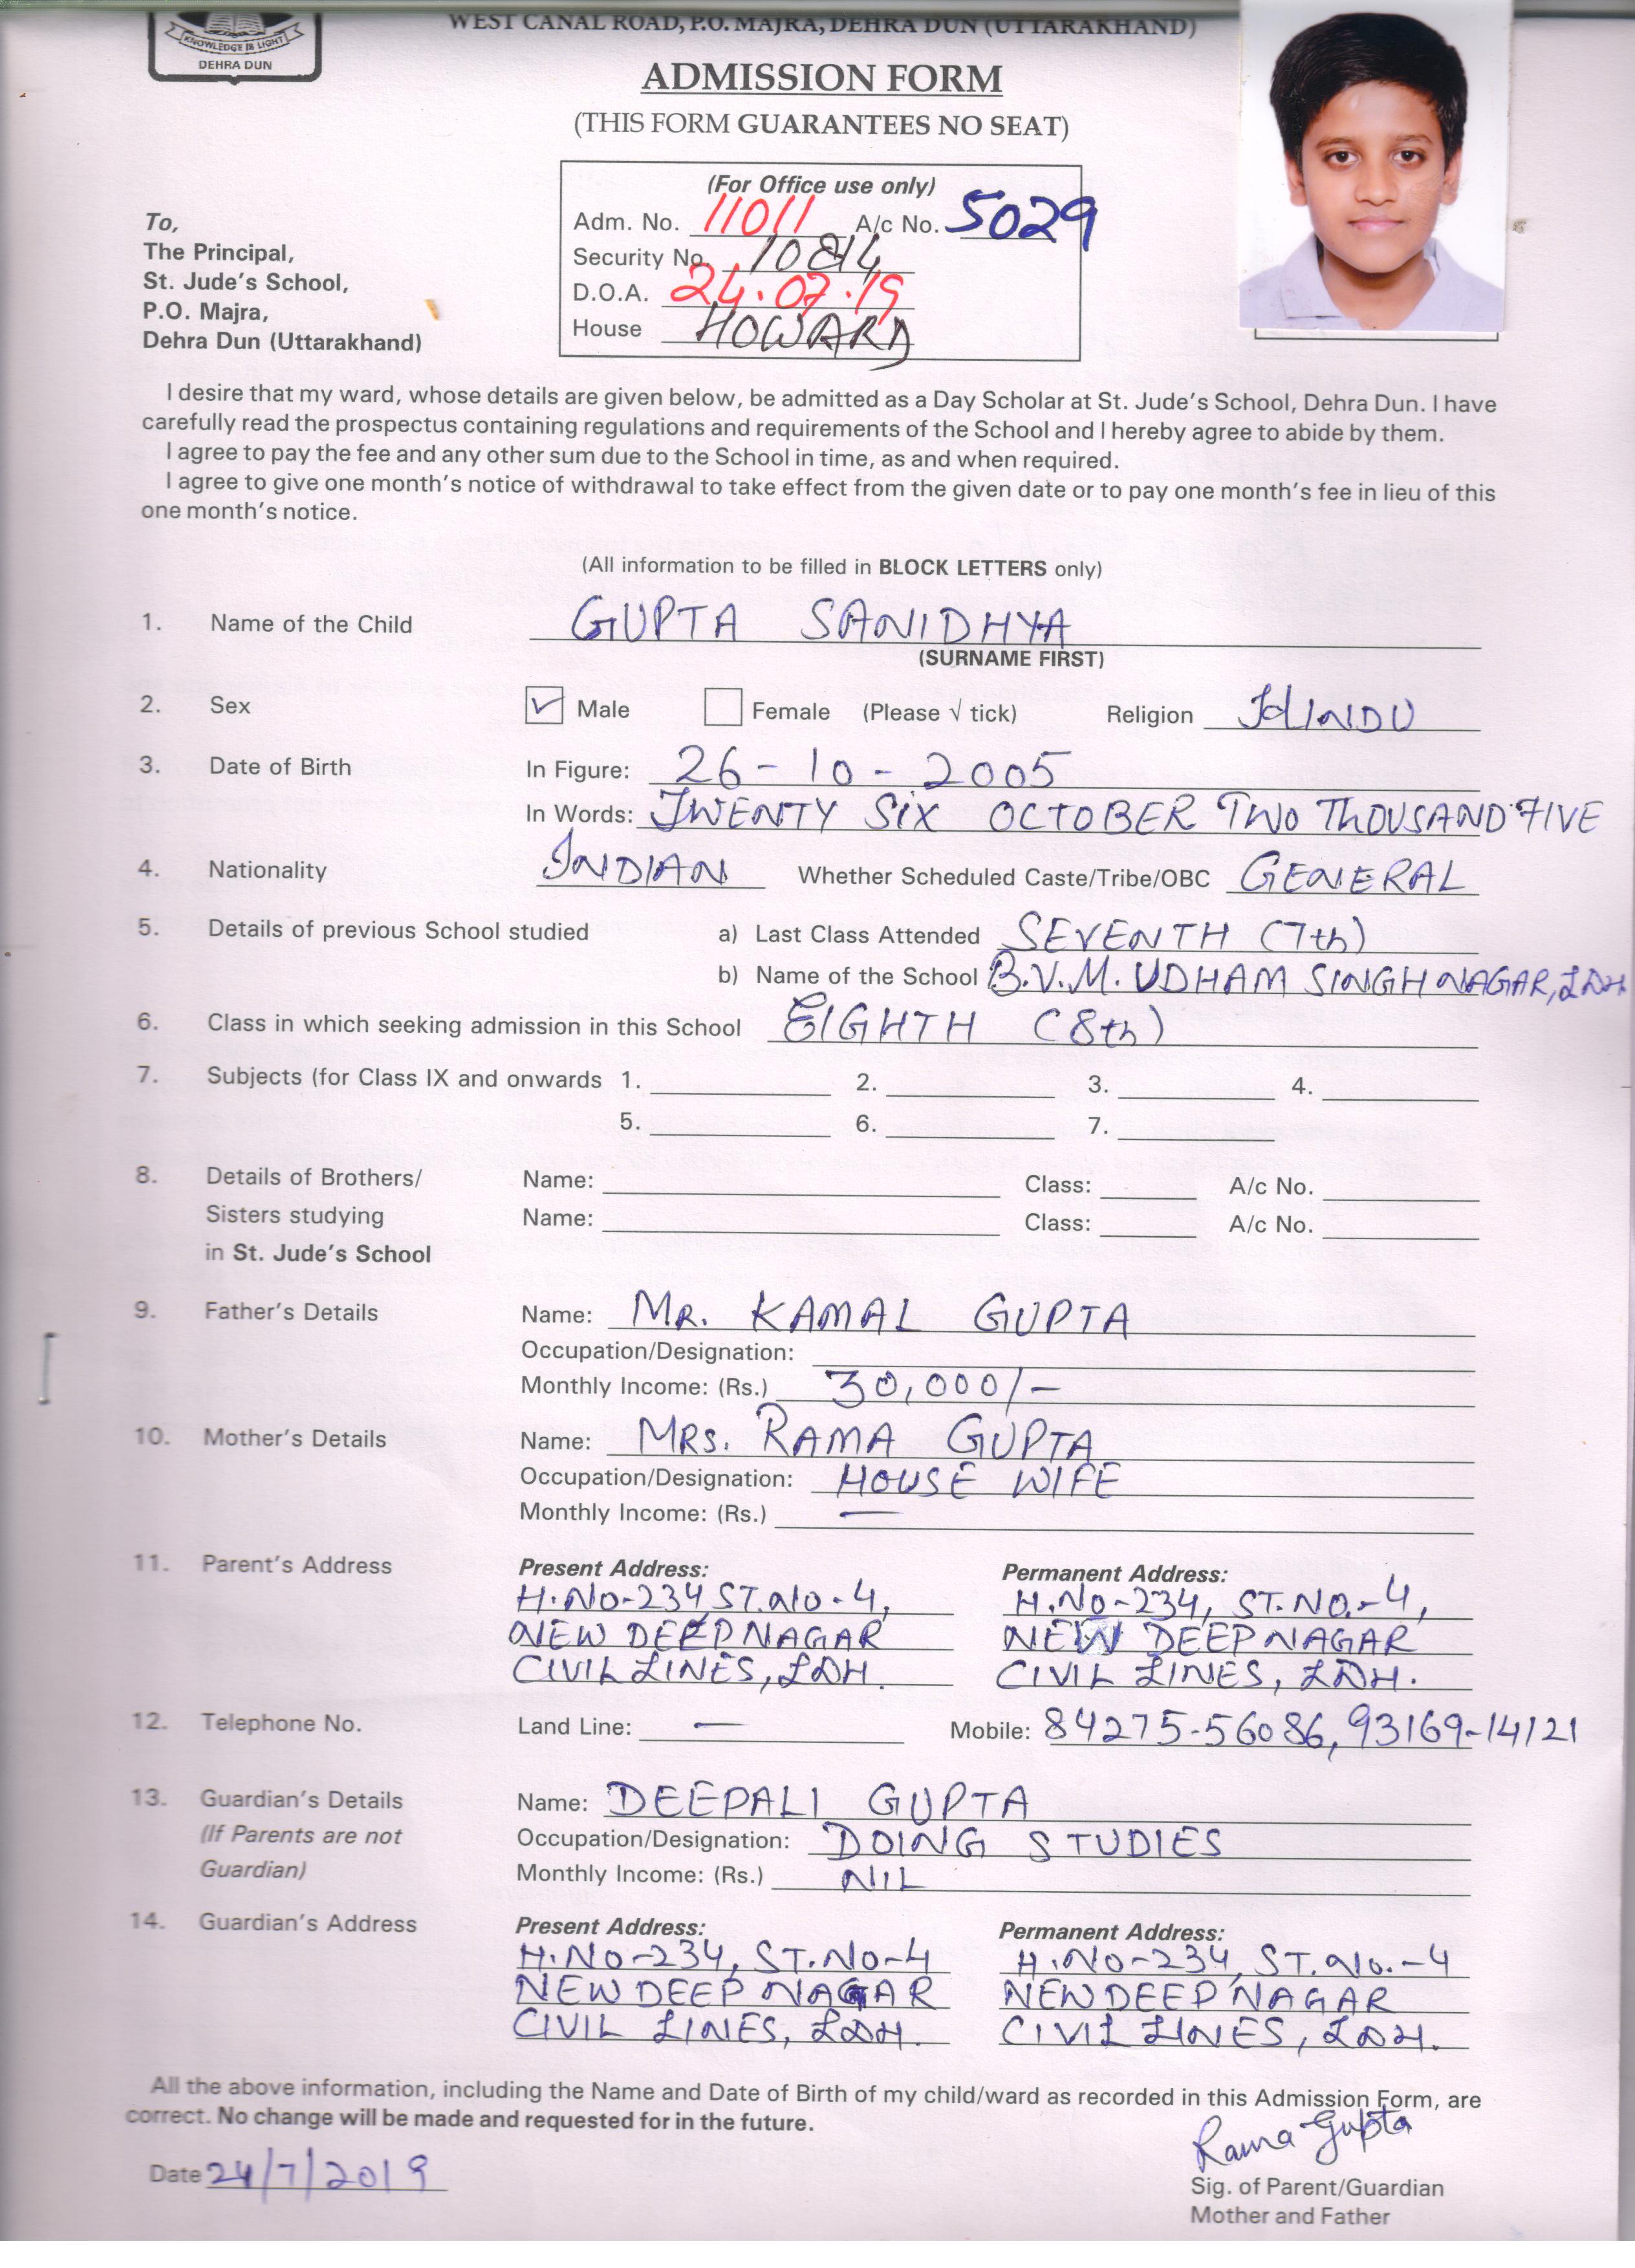 WEST CANAL ROAD, P.O. MAJRA, DEHRA DUN (UTTARAKHAND)
KNOWLEDGE IS LIGHT
DEHRA DUN
ADMISSION FORM
(THIS FORM GUARANTEES NO SEAT)
(For Office use only)
Adm. No. 11011 A/c No. 5029
Security No. 10814
D.O.A. 24.07.19
House HOWARD
To,
The Principal,
St. Jude's School,
P.O. Majra,
Dehra Dun (Uttarakhand)
I desire that my ward, whose details are given below, be admitted as a Day Scholar at St. Jude's School, Dehra Dun. I have
carefully read the prospectus containing regulations and requirements of the School and I hereby agree to abide by them.
I agree to pay the fee and any other sum due to the School in time, as and when required.
I agree to give one month's notice of withdrawal to take effect from the given date or to pay one month's fee in lieu of this
one month's notice.
(All information to be filled in BLOCK LETTERS only)
1. Name of the Child GUPTA SANIDHYA
(SURNAME FIRST)
2. Sex Male Female (Please √ tick) Religion HINDU
3. Date of Birth In Figure: 26-10-2005
In Words: TWENTY SIX OCTOBER TWO THOUSAND FIVE
4. Nationality INDIAN Whether Scheduled Caste/Tribe/OBC GENERAL
5. Details of previous School studied a) Last Class Attended SEVENTH (7th)
b) Name of the School B.V.M. UDHAM SINGH NAGAR, LDH
6. Class in which seeking admission in this School EIGHTH (8th)
7. Subjects (for Class IX and onwards 1. 2. 3. 4.
5. 6. 7.
8. Details of Brothers/ Name: Class: A/c No.
Sisters studying Name: Class: A/c No.
in St. Jude's School
9. Father's Details Name: MR. KAMAL GUPTA
Occupation/Designation:
Monthly Income: (Rs.) 30,000/-
10. Mother's Details Name: MRS. RAMA GUPTA
Occupation/Designation: HOUSE WIFE
Monthly Income: (Rs.) —
11. Parent's Address Present Address: Permanent Address:
H.No-234 ST.No-4, H.No-234, ST.NO.-4,
NEW DEEP NAGAR NEW DEEP NAGAR
CIVIL LINES, LDH. CIVIL LINES, LDH.
12. Telephone No. Land Line: — Mobile: 84275-56086, 93169-14121
13. Guardian's Details Name: DEEPALI GUPTA
(If Parents are not Occupation/Designation: DOING STUDIES
Guardian) Monthly Income: (Rs.) NIL
14. Guardian's Address Present Address: Permanent Address:
H.No-234, ST.No-4 H.No-234, ST.No.-4
NEW DEEP NAGAR NEW DEEP NAGAR
CIVIL LINES, LDH. CIVIL LINES, LDH.
All the above information, including the Name and Date of Birth of my child/ward as recorded in this Admission Form, are
correct. No change will be made and requested for in the future.
Rama Gupta
Date 24/7/2019
Sig. of Parent/Guardian
Mother and Father